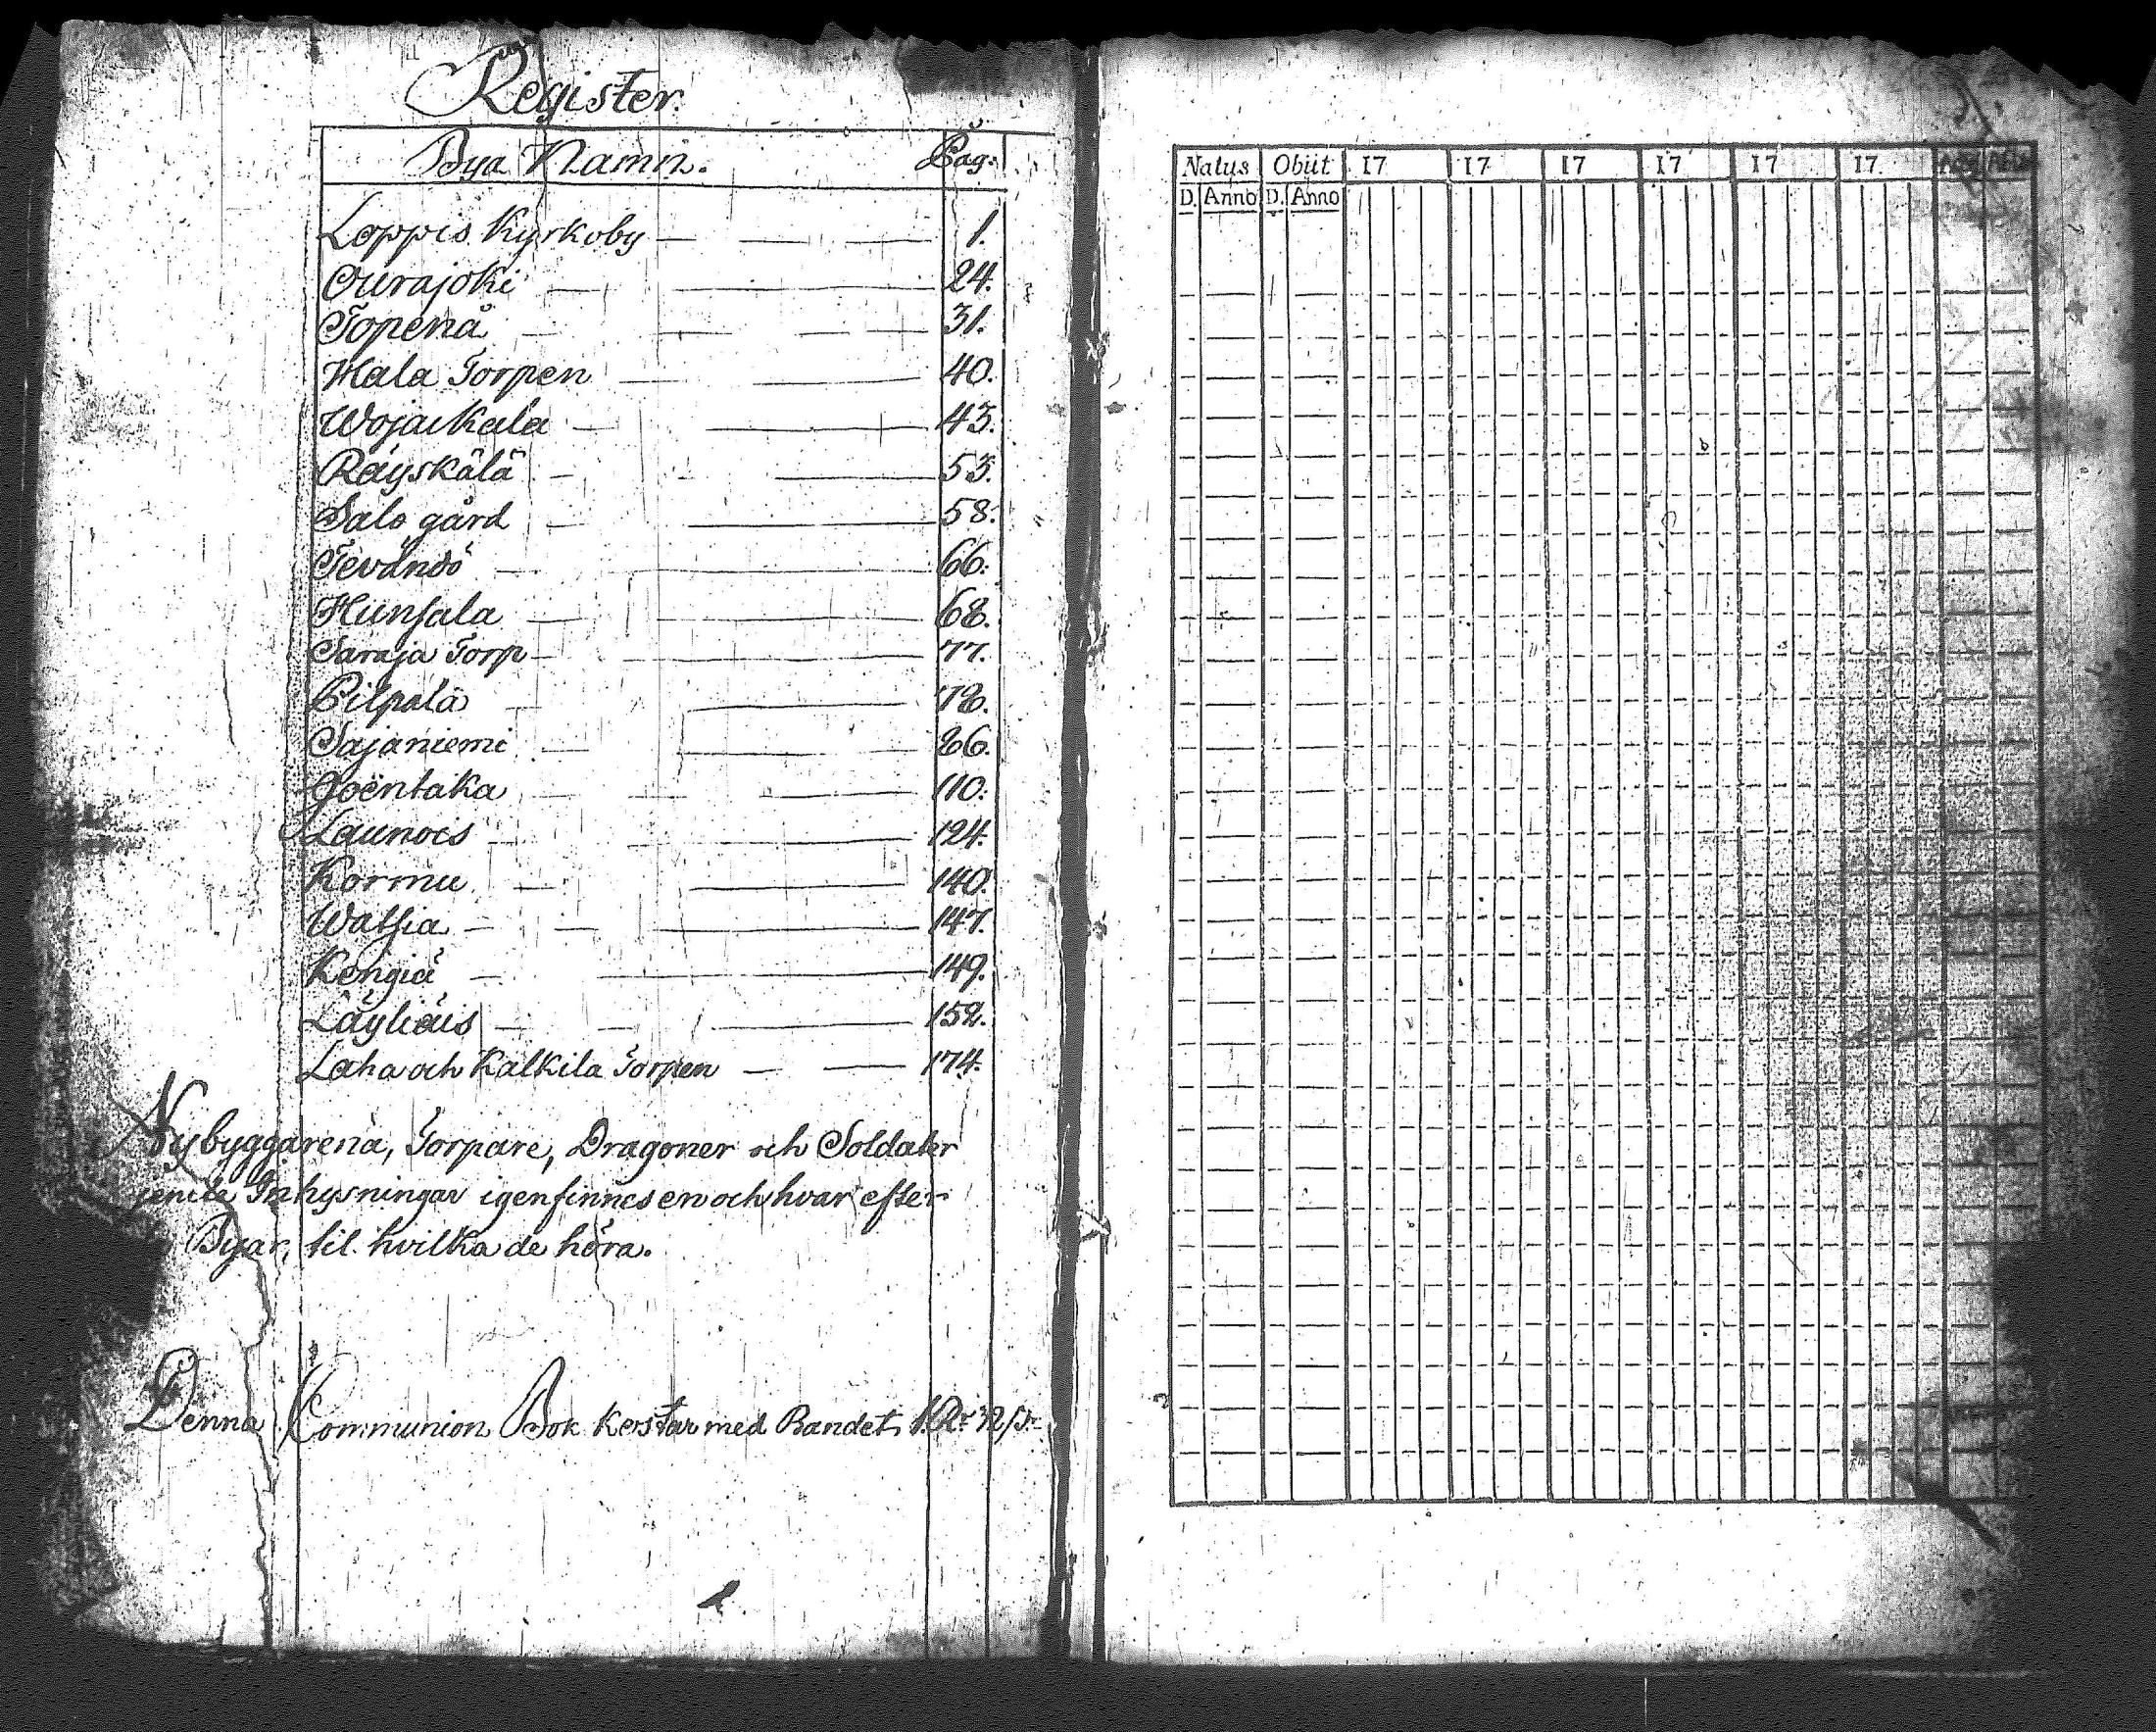 Register.
Bya Namn. Pag:
Loppis Kyrkoby 1.
Ourajoki 24.
Topenå 31.
Hala Torpen 40.
Wojaikala 43.
Räyskälä 53.
Salo gård 58.
Tevändö 66.
Hunsala 68.
Saraja Torp 77.
Pilpala 78.
Sajaniemi 86.
Joëntaka 110.
Launois 124.
Kormu 140.
Watsia 147.
Kengiä 149.
Läyliäis 152.
Laha och Kalkila Torpen 174.
Nybyggarena, Torpare, Dragoner och Soldater
Inhysningar igenfinnes en och hvar efter
Byar, til hvilka de höra.
Denna Communion Bok kostar med Bandet
Natus Obiit 17 17 17 17 17 17.
D. Anno D. Anno